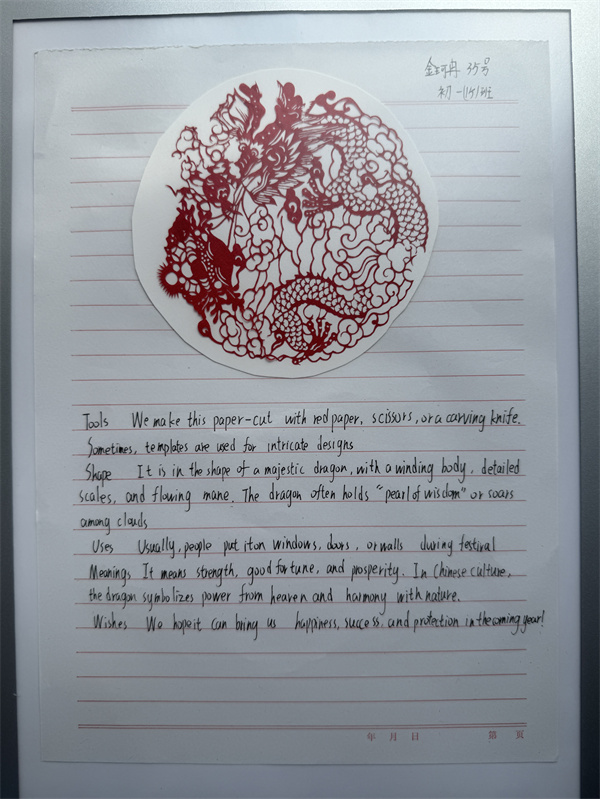 金珂冉 35号
初一(15)班
Tools We make this paper-cut with red paper, scissors, or a carving knife.
Sometimes, templates are used for intricate designs
Shape It is in the shape of a majestic dragon, with a winding body, detailed
scales, and flowing mane. The dragon often holds "pearl of wisdom" or soars
among clouds
Uses Usually, people put it on windows, doors, or walls during festival
Meanings It means strength, good fortune, and prosperity. In Chinese culture,
the dragon symbolizes power from heaven and harmony with nature.
Wishes We hope it can bring us happiness, success, and protection in the coming year!
年 月 日 第 页